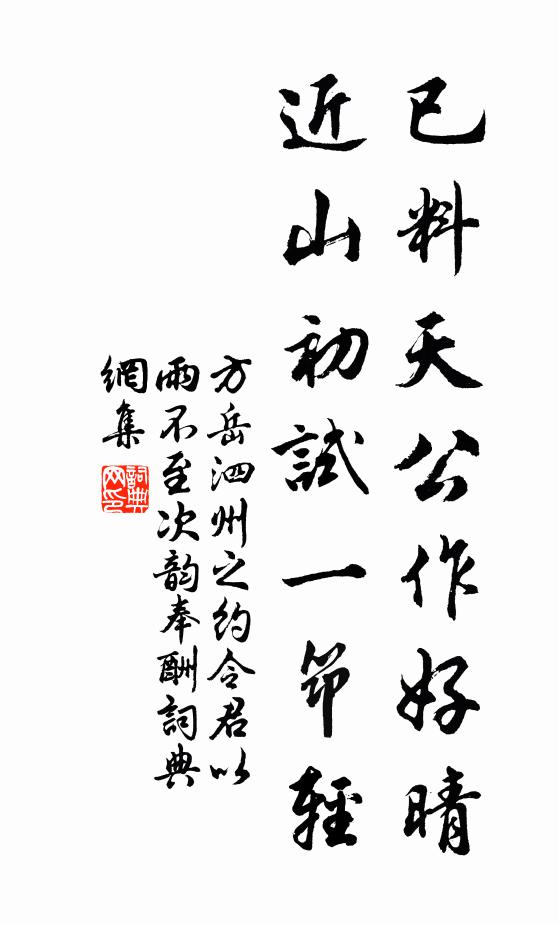 已料天公作好晴
近山初試一笻輕
方岳泗州之約令君以
雨不至次韵奉酬詞典
網集
詞典
网印